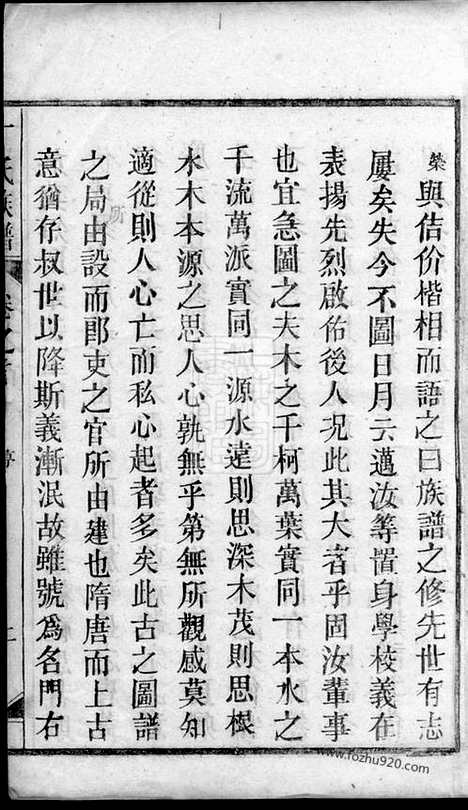 榮與佶价楷相而語之曰族譜之修先世有志
屢矣失今不圖日月云邁汝等置身學校義在
表揚先烈啟佑後人况此其大者乎固汝輩事
也宜急圖之夫木之千柯萬葉實同一本水之
千流萬派實同一源水達則思深木茂則思根
水木本源之思人心孰無乎第無所觀感莫知
適從則人心亡而私心起者多矣此古之圖譜
之局由設而郎吏之官所由建也隋唐而上古
意猶存叔世以降斯義漸泯故雖號爲名門右
氏族譜
www.fozhu920.com